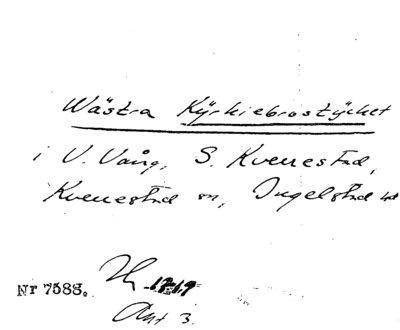 Wästra Kÿrkiebrostÿcket
i V. Vång, S. Kverrestad,
Kverrestad sn, Ingelstad hd
Nr 7588.
1719
Akt 3.